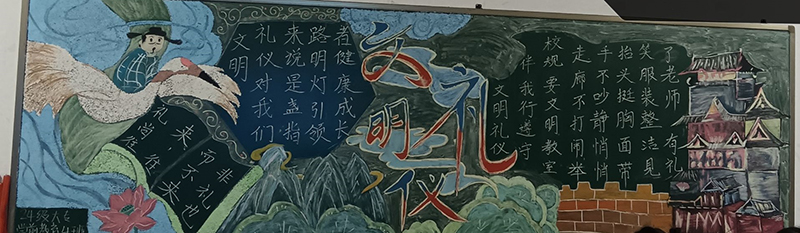 礼尚往
来,往
而不来
非礼也
文明
礼仪对我们
来说是盏指
路明灯引领
着健康成长
文明
礼仪
文明礼仪
伴我行遵守
校规要文明教室
走廊不打闹举
手不吵静悄悄
抬头挺胸面带
笑服装整洁见
了老师有礼
24级大专
学前教育4班